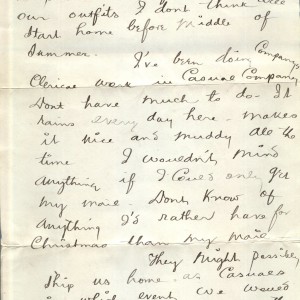 our outfits I don't think we'll
Start home before middle of
Summer. I've been doing Company
Clerical work in Casual Company
Dont have much to do - It
rains every day here - makes
it nice and muddy all the
time I wouldn't mind
anything if I could only get
my mail. Dont Know of
anything I'd rather have for
Christmas than my mail
They might possibly
Ship us home as Casuals
in which event we would